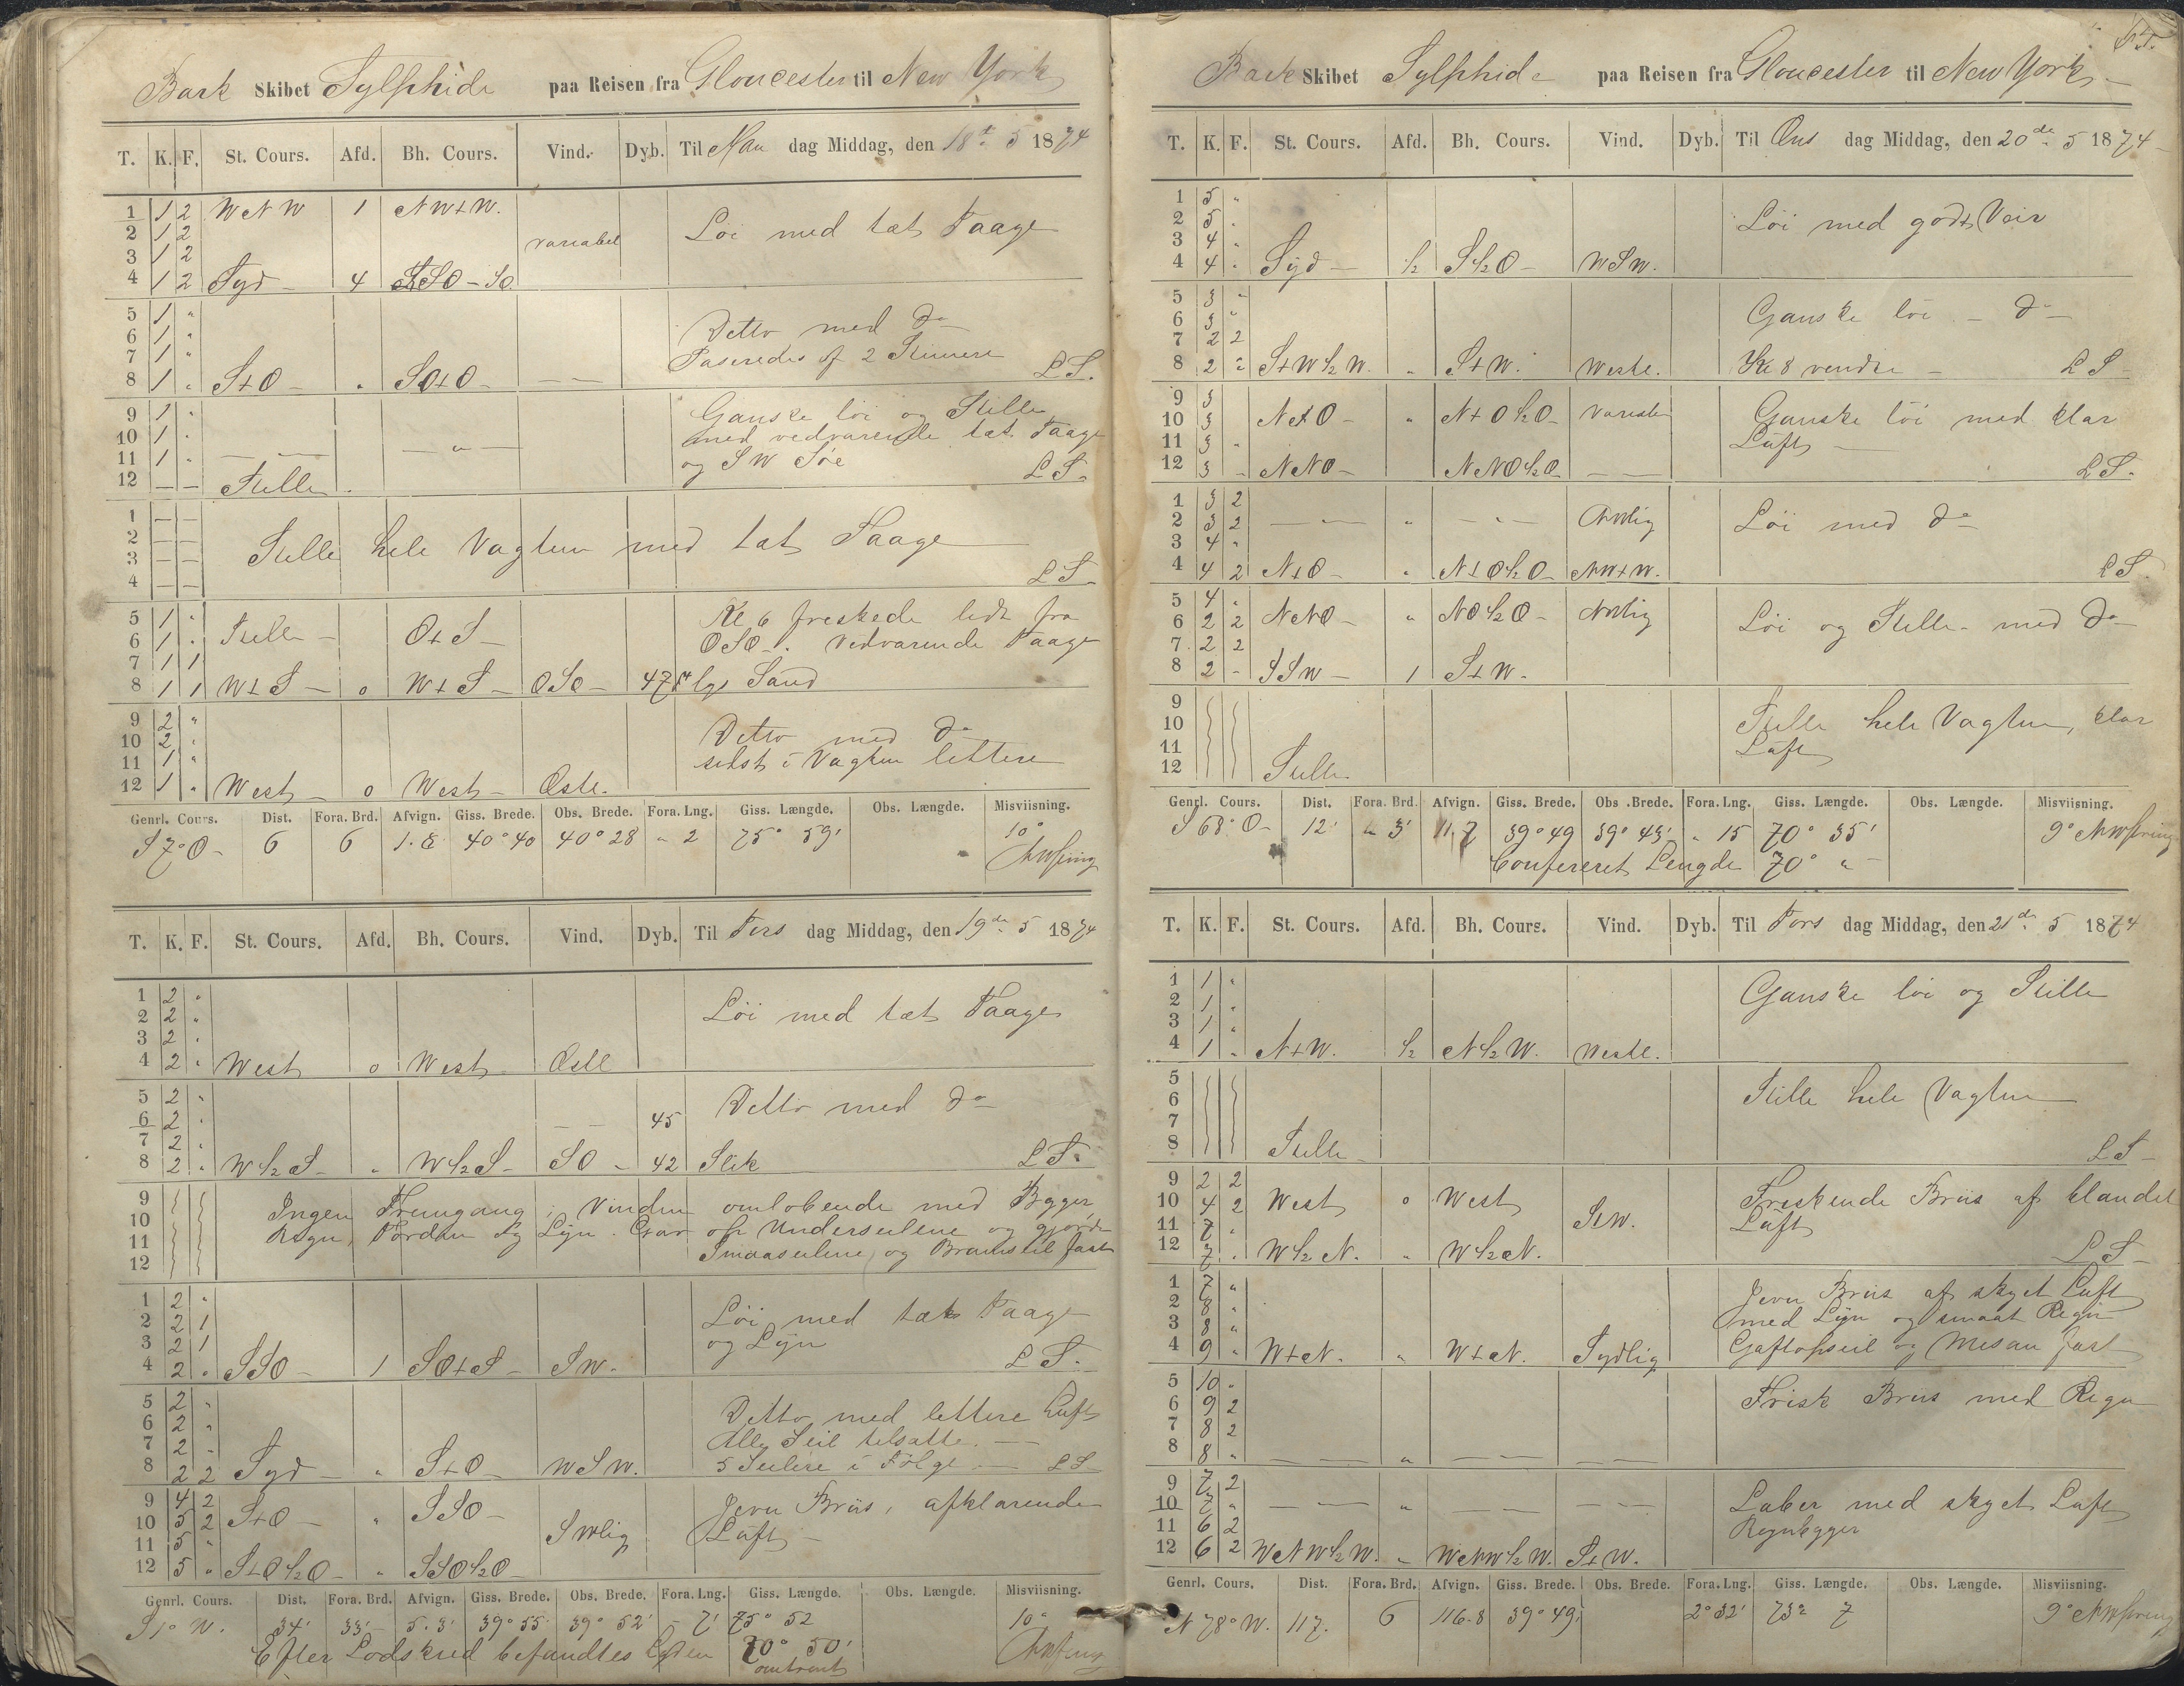 Bark Skibet Sylphide paa Reisen fra Gloucester til New York
T. K. F. St. Cours. Afd. Bh. Cours. Vind. Dyb. Til Man dag Middag, den 18de 5 1874
1 1 2 WNW 1 NW+W.
2 1 2 variabel Löi med tæt Taage
3 1 2
4 1 2 Syd – 4 SSO – SO
5 1 "
6 1 " Detto med do
7 1 " Paseredes af 2 Stimere
8 1 " S+O – " SO+O – L S.
9 1 " Ganske löi og Stille
10 1 " med vedvarende tæt Taage
11 1 " og SW Söe L S.
12 – – Stille
1 – –
2 – – Stille hele Vagten med tæt Taage
3 – –
4 – – L S.
5 1 " Kl 6 freskede lidt fra
6 1 " Stille – O+S – OSO –. Vedvarende Taage
7 1 1
8 1 1 W+S – o W+S – OSO – 47 Sand
9 2 "
10 2 " Detto med do
11 1 " sidst i Vagten lettere
12 1 " West – o West – Oste.
Genrl. Cours. Dist. Fora. Brd. Afvign. Giss. Brede. Obs. Brede. Fora. Lng. Giss. Længde. Obs. Længde. Misviisning.
S 7° O – 6 6 1.8 40° 40 40° 28 " 2 75° 59' 10°
T. K. F. St. Cours. Afd. Bh. Cours. Vind. Dyb. Til Tirs dag Middag, den 19de 5 1874
1 2 "
2 2 " Löi med tæt Taage
3 2 "
4 2 " West o West Oste
5 2 "
6 2 " 45 Detto med do
7 2 "
8 2 " W½S – " W½S – SO – 42 Slik L S.
9 Ingen Fremgang; Vinden omlöbende med Bygger
10 Regn, Torden og Lyn. Gav op Underseilene og gjorde
11 Smaaseilene og Bramseil fast
12
1 2 "
2 2 1 Löi med tæt Taage
3 2 1 og Lyn
4 2 " SSO – 1 SO+S – SW. L S.
5 2 "
6 2 " Detto med lettere Luft
7 2 " Alle Seil tilsatte. –
8 2 2 Syd – " S+O – WSW. 5 Seilere i Fölge. – L S –
9 4 2 Jevn Briis, afklarende
10 5 2 S+O – " SSO – SWlig Luft –
11 5 "
12 5 " S+O½O – " SSO½O –
Genrl. Cours. Dist. Fora. Brd. Afvign. Giss. Brede. Obs. Brede. Fora. Lng. Giss. Længde. Obs. Længde. Misviisning.
S 1° W. 34' 33' 5.3' 39° 55' 39° 52' – 7' 75° 52 10°
Efter Lodskud befandtes 70° 50'
omtrent
Bark Skibet Sylphide paa Reisen fra Gloucester til New York –
T. K. F. St. Cours. Afd. Bh. Cours. Vind. Dyb. Til Ons dag Middag, den 20de 5 1874
1 5 "
2 5 " Löi med godt Veir
3 4 "
4 4 " Syd – ½ S½O – WSW.
5 3 "
6 3 " Ganske löi – do –
7 2 2
8 2 " S+W½W. " S+W. Weste. Kl 8 vendte – L S –
9 3
10 3 N+O – " N+O½O – Variabl Ganske löi med klar
11 3 " Luft –
12 3 – NNO – NNO½O – – – L S.
1 3 2
2 3 2 – " – " – " – NWlig Löi med do
3 4 "
4 4 2 N+O – " N+O½O – NW+W. L S.
5 4 "
6 2 2 NNO – " NO½O – NWlig Löi og Stille – med do
7 2 2
8 2 – SSW – 1 S+W.
9
10 Stille hele Vagten, klar
11 Luft
12 Stille
Genrl. Cours. Dist. Fora. Brd. Afvign. Giss. Brede. Obs. Brede. Fora. Lng. Giss. Længde. Obs. Længde. Misviisning.
S 68° O – 12' " 3' 11.7 39° 49 39° 43' " 15 70° 35' 9°
Confereret Lengde 70° " –
T. K. F. St. Cours. Afd. Bh. Cours. Vind. Dyb. Til Tors dag Middag, den 21de 5 1874
1 1 "
2 1 " Ganske löi og Stille
3 1 "
4 1 " N+W. ½ N½W. Weste.
5
6 Stille hele Vagten
7
8 Stille – L S –
9 2 2
10 4 2 West o West Freskende Briis af blandet
11 7 " SW. Luft
12 7 " W½N. " W½N. L S –
1 7 " Jevn Briis af skyet Luft
2 8 " med Lyn og smaat Regn
3 8 "
4 9 " W+N. " W+N. Sydlig Gaftopseil og Mesan fast
5 10 "
6 9 2 Frisk Briis med Regn
7 8 2
8 8 " – – " – – – –
9 7 2
10 7 " – – " – – – – Laber med skyet Luft
11 6 2 Regnbygger
12 6 2 WNW½W. " WNW½W. S+W.
Genrl. Cours. Dist. Fora. Brd. Afvign. Giss. Brede. Obs. Brede. Fora. Lng. Giss. Længde. Obs. Længde. Misviisning.
N 78° W. 117. 6 116.8 39° 49' 2° 32' 73° 7 9°